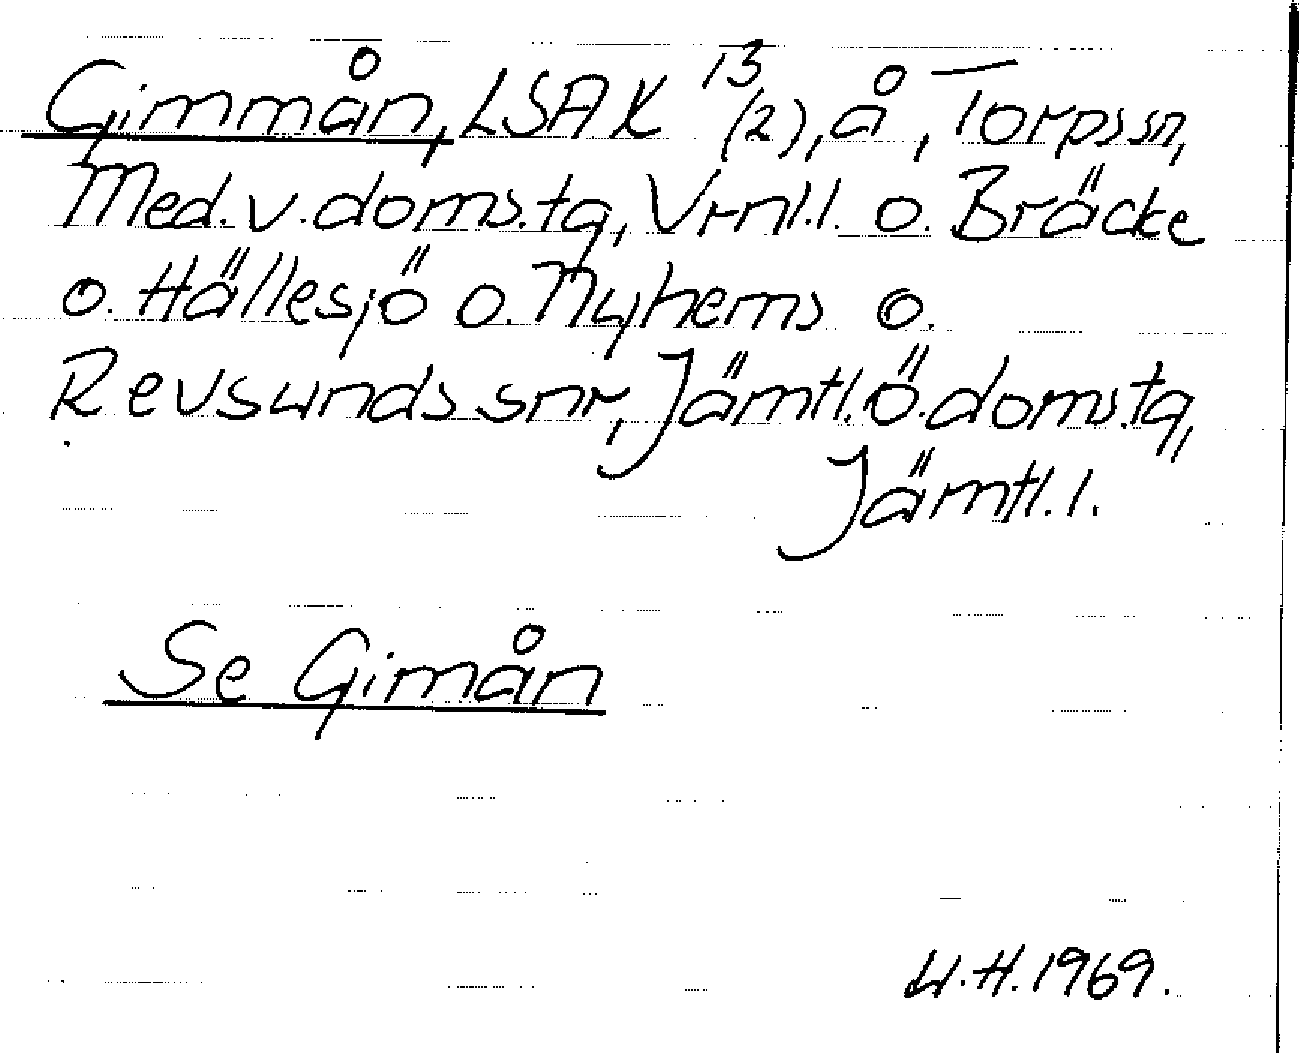 Gimmån, LSAK 13 (2), å, Torps sn,
Med. v. doms.tg, Vrnl.l. o. Bräcke
o. Hällesjö o. Nyhems o.
Revsunds snr, Jämtl.ö.doms.tg,
Jämtl.l.
Se Gimån
U.H. 1969.